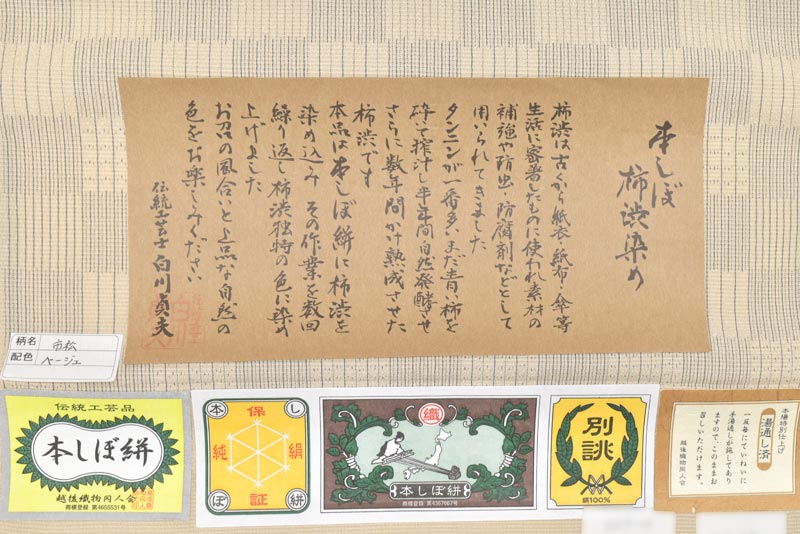 本しぼ
柿渋染め
柿渋は古くから紙衣・紙布・傘等
生活に密着したものに使われ素材の
補強や防虫・防腐剤などとして
用いられてきました
タンニンが一番多いまだ青い柿を
砕いて搾汁し半年間自然発酵させ
さらに数年間かけ熟成させた
柿渋です
本品は本しぼ絣に柿渋を
染め込み その作業を数回
繰り返し柿渋独特の色に染め
上げました
お召の風合いと上品な自然の
色をお楽しみください
伝統工芸士 白川貞夫
柄名 市松
配色 ベージュ
伝統工芸品
本しぼ絣
越後織物同人会
商標登録 第4655531号
本 保 し
純 絹
ぼ 証 絣
織
本しぼ絣
商標登録 第4367667号
別誂
絹100%
本場特別仕上げ
湯通し済
一反毎にていねいに
手湯通しが施してあり
ますので、このままお
召しいただけます。
越後織物同人会